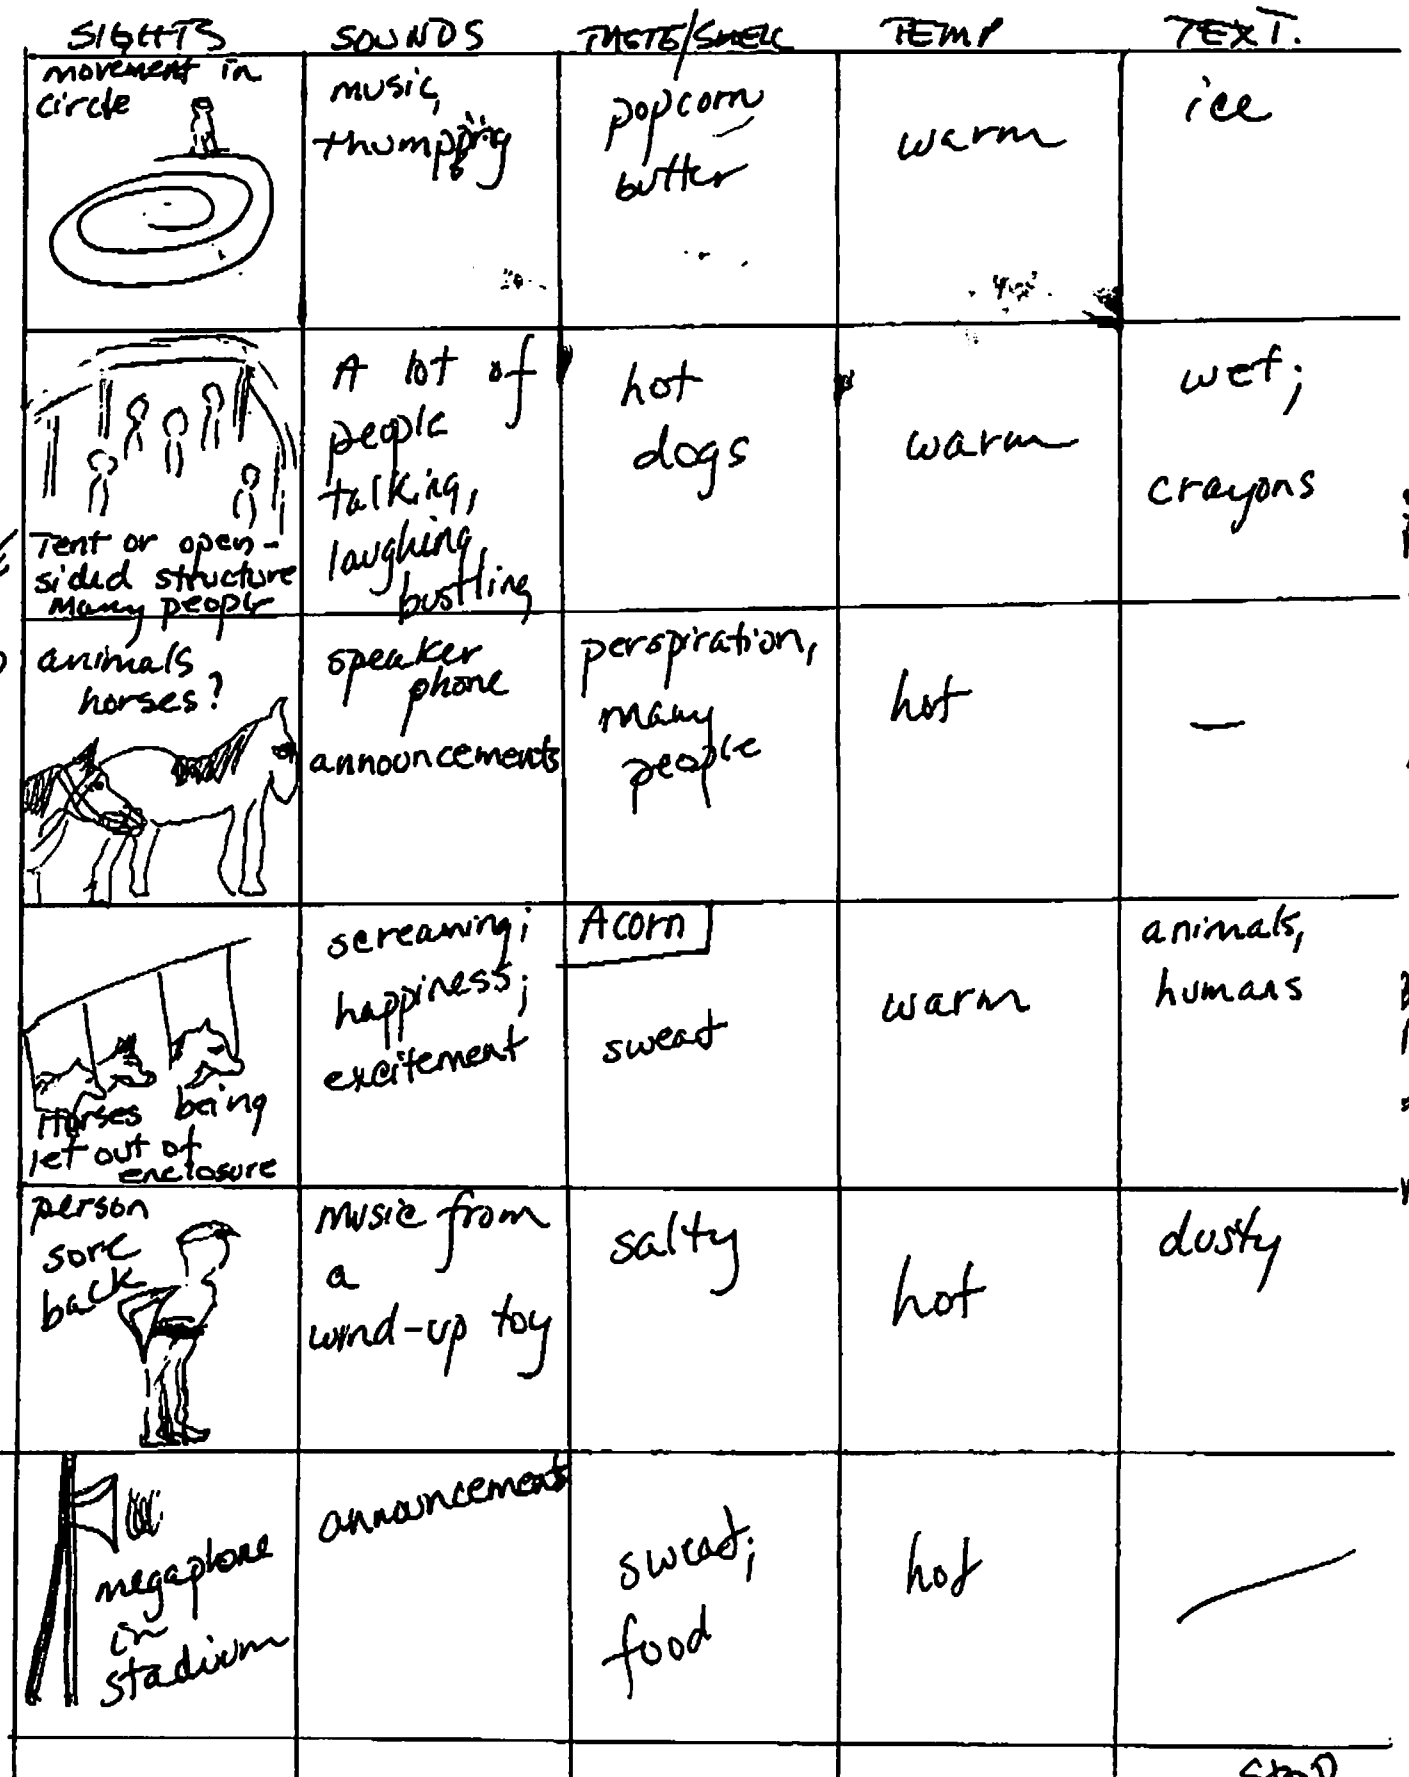 SIGHTS SOUNDS TASTE/SMELL TEMP TEXT.
movement in
circle
music,
thumping
popcorn
butter
warm
ice
Tent or open-
sided structure
Many people
A lot of
people
talking,
laughing,
bustling
hot
dogs
warm
wet;
crayons
animals
horses?
speaker
phone
announcements
perspiration,
many
people
hot
—
Horses being
let out of
enclosure
screaming;
happiness;
excitement
Acorn
sweat
warm
animals,
humans
person
sore
back
Music from
a
wind-up toy
salty
hot
dusty
megaphone
in
stadium
announcements
sweat;
food
hot